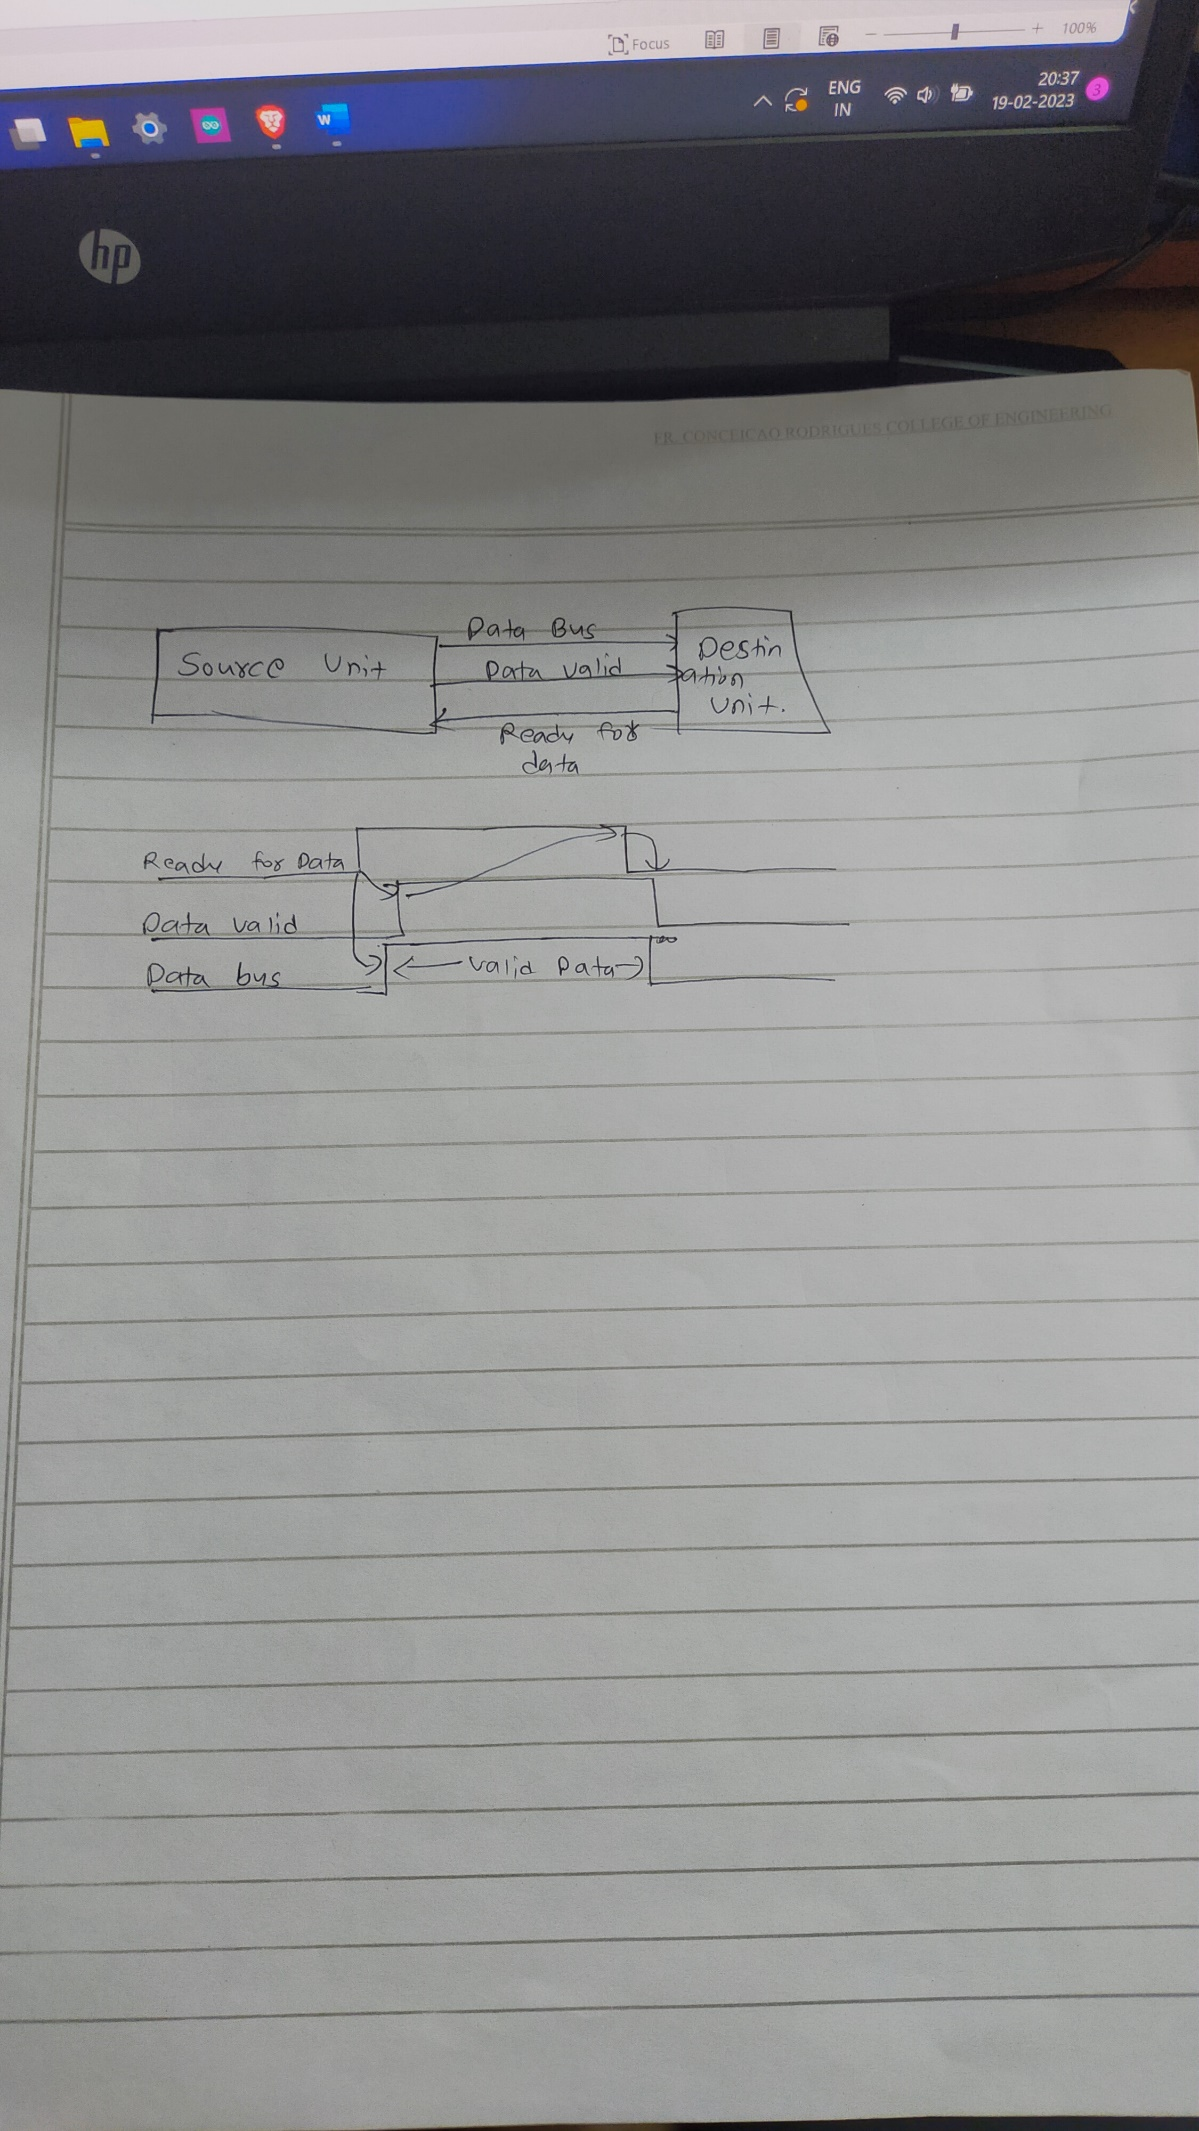 Focus
100%
ENG
IN
20:37
19-02-2023
3
W
hp
FR. CONCEICAO RODRIGUES COLLEGE OF ENGINEERING
Source Unit
Data Bus
Data valid
Ready for
data
Destin
ation
Unit.
Ready for Data
Data valid
Data bus
valid Data